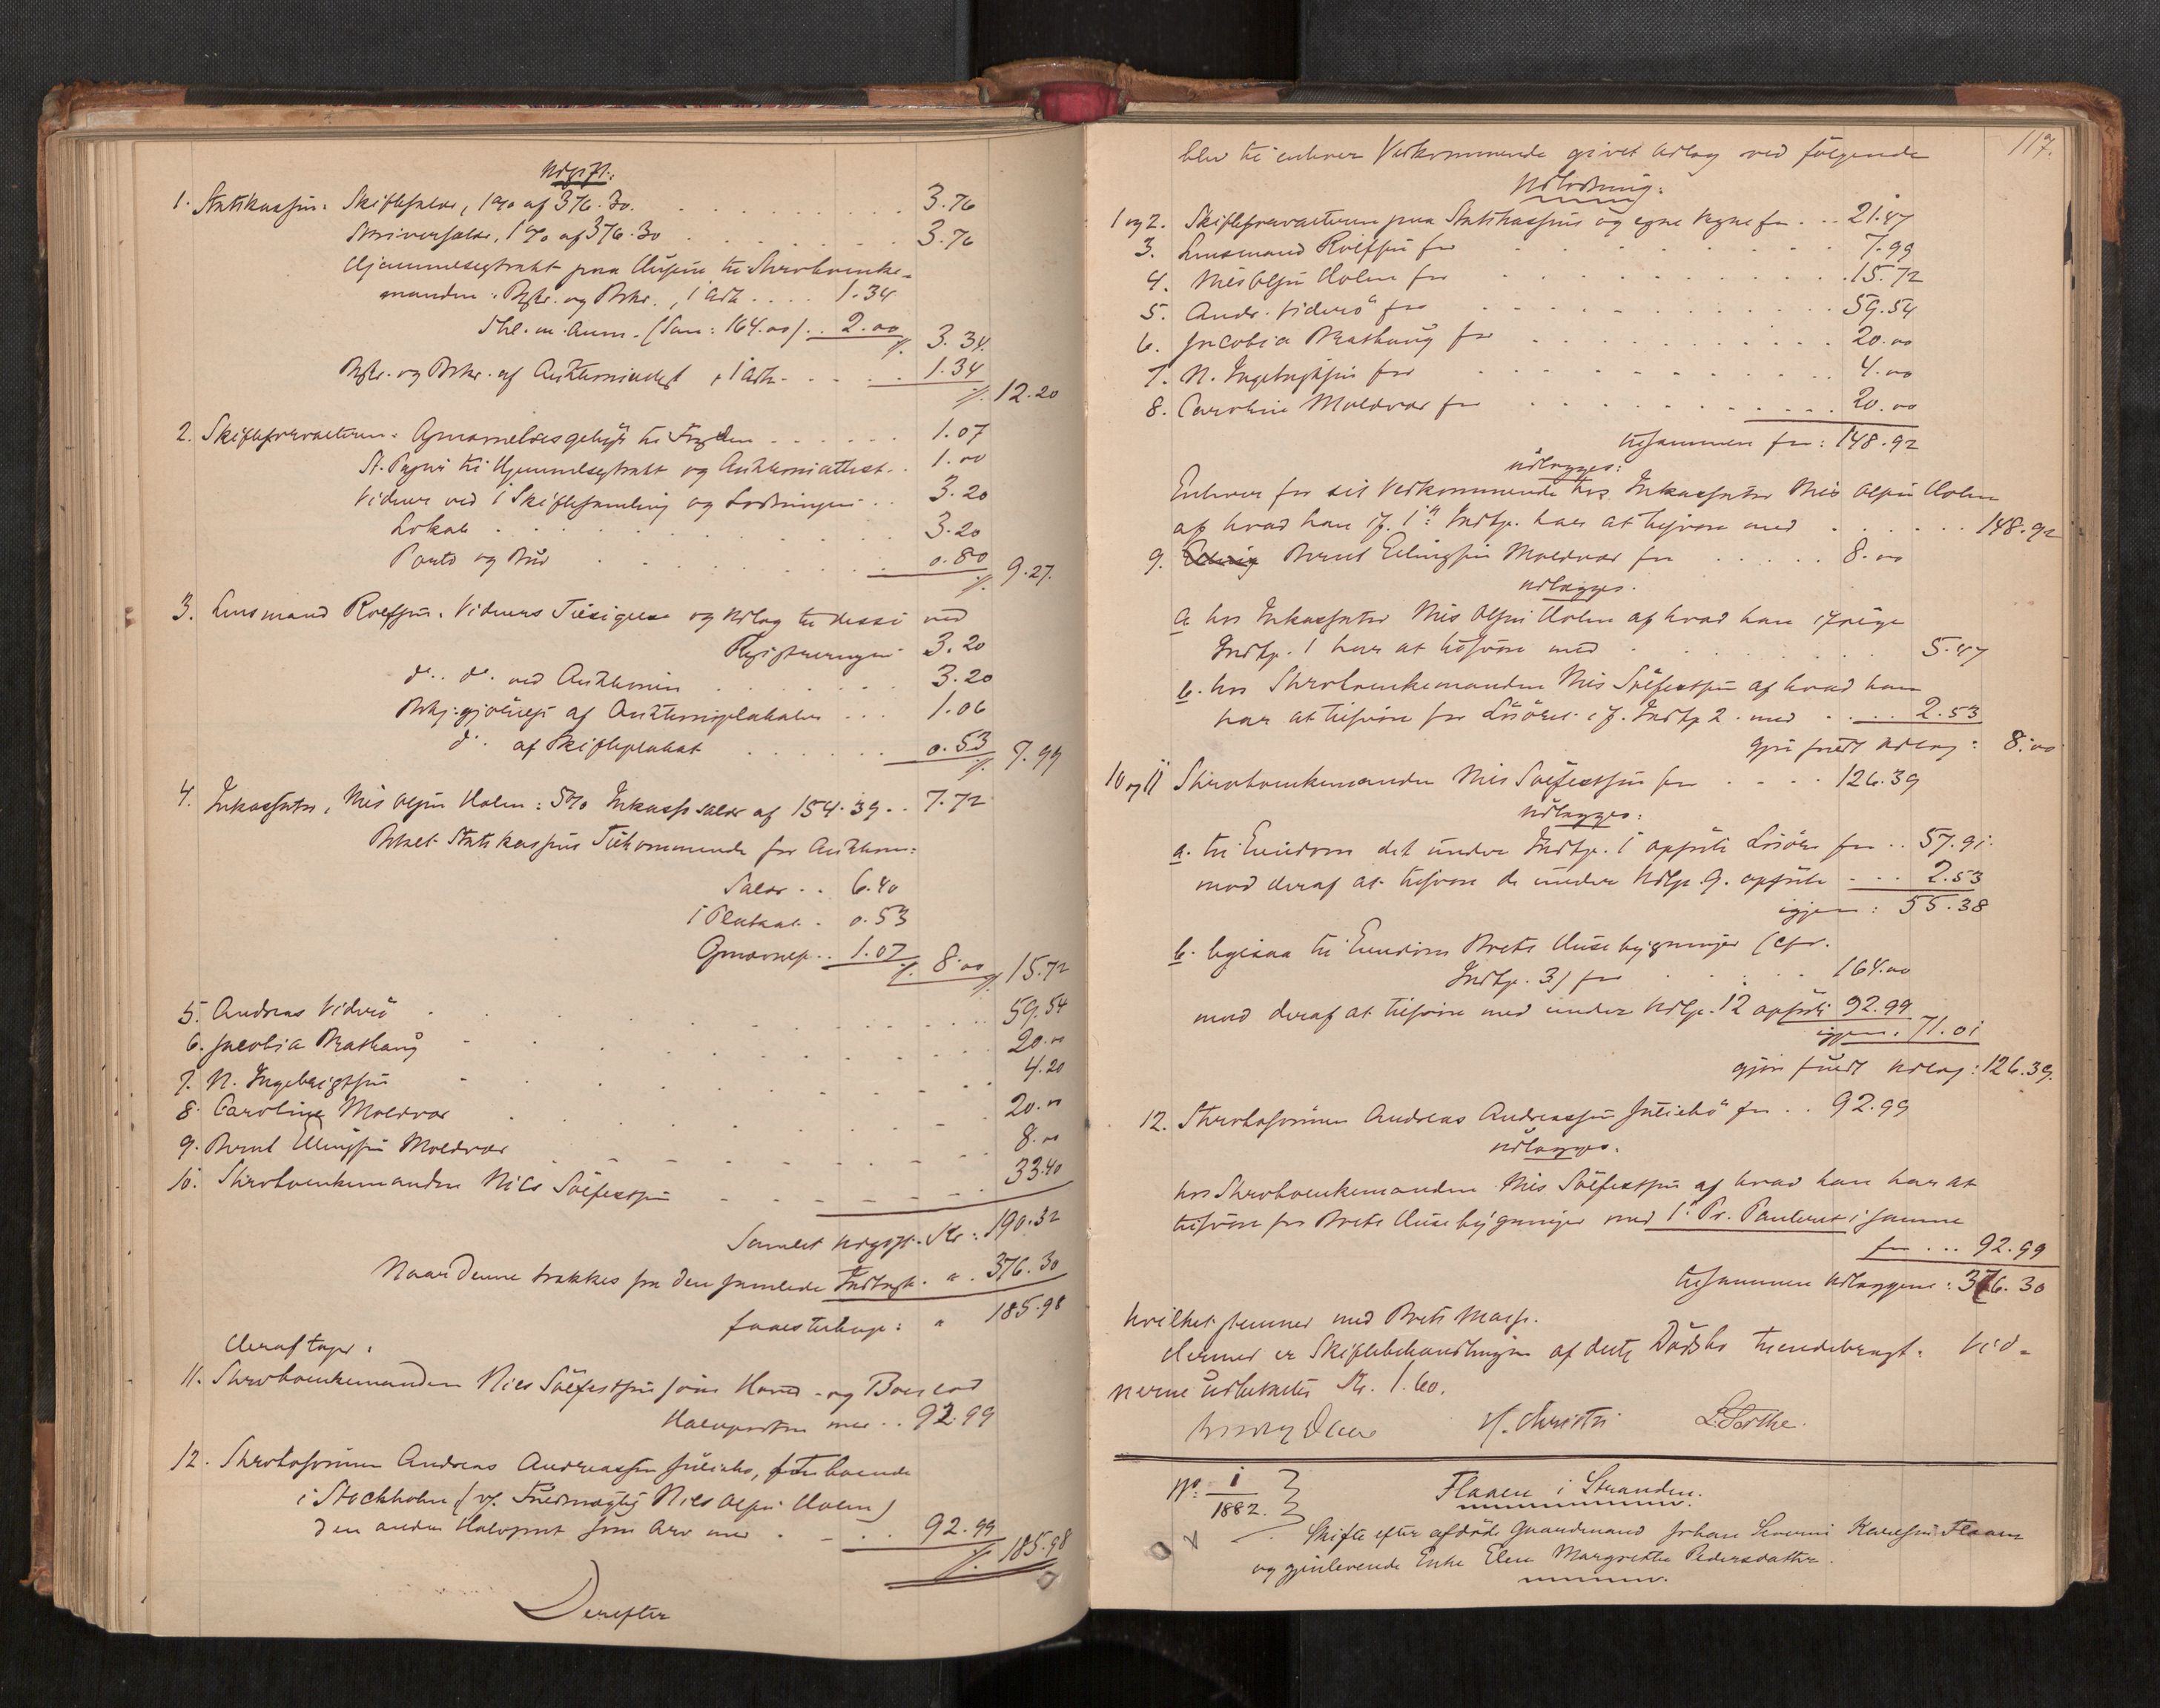 Udgift:
1. Statskassen: Skiftesalær, 1 % af 376.30. 3.76
Skriversalær, 1 % af 376.30 3.76
Hjemmelsextrakt paa Husene til Skrobenke-
manden: Dgbr. og Prkr., 1 Ark .... 1.34
Skl. m. Anm. (Sum: 164.00) .. 2.00
./. 3.34.
Dgbr. og Prkr. af Auktionsudst, 1 Ark. 1.34
./. 12.20
2. Skifteforvalteren: til Fogden 1.07
St. Papir til Hjemmelsextrakt og Auktionsattest 1.00
Vidner ved 1 Skiftesamling og Lodningen .. 3.20
Lokale 3.20
Porto og Bud 0.80
./. 9.27.
3. Lensmand Rolfsen: Vidners Tilsigelse og Udlæg til disse ved
Registreringen 3.20
do. do. ved Auktionen 3.20
Bekj.gjörelse af Auktionsplakaten ... 1.06
do. af Skifteplakat 0.53
./. 7.99
4. Inkassator, Nils Olsen Holm: 5% Inkassosalær af 154.39 .. 7.72
Betalt Statskassens Tilkommende for Auktion:
Salær .. 6.40
1 Plakat . 0.53
1.07
./. 8.00 ./. 15.72
5. Andreas Viderö 59.54
6. Jacobia Brathaug 20.00
7. N. Ingebrigtsen 4.20
8. Caroline Moldvær 20.00
9. Bernt Ellingsen Moldvær 8.00
10. Nils Sölfestsen 33.40
Samlet Udgift. Kr: 190.32
Naar denne trækkes fra den samlede Indtægt " 376.30
faaes tilbage: " 185.98
Heraf tager:
11. Nils Sölfestsen som Hoved- og Boeslod
Halvparten med .. 92.99
12. Andreas Andreassen Juliebö, boende
i Stockholm (v. Fuldmægtig Nils Olsen Holm)
den anden Halvpart som Arv med 92.99
./. 185.98
Derefter
117.
blev til enhver Vedkommende givet Udlæg ved følgende
Udlodning:
1 og 2. Skifteforvalteren paa Statskassens og egne Vegne for .. 21.47
3. Lensmand Rolfsen for 7.99
4. Nils Olsen Holm for 15.72
5. Andr. Viderö for 59.54
6. Jacobia Brathaug for 20.00
7. N. Ingebrigtsen for 4.00
8. Caroline Moldvær for 20.00
tilsammen for: 148.92
udlægges:
Enhver for sit Vedkommende hos Inkassator Nils Olsen Holm
af hvad han if. 1ste Indtp. har at tilsvare med 148.92
9. Bernt Ellingsen Moldvær for 8.00
udlægges.
a. hos Inkassator Nils Olsen Holm af hvad han ifølge
Indtp. 1 har at tilsvare med 5.47
b. hos Nils Sölfestsen af hvad han
har at tilsvare for Lösöre if. Indtp 2. med 2.53
gjör fuldt Udlæg: 8.00
10 og 11 Nils Sölfestsen for 126.39
udlægges:
a. til Eiendom det under Indtp. 1 opförte Lösöre for .. 57.91.
mod deraf at tilsvare de under Udlp. 9. opförte 2.53
igjen: 55.38
b. ligesaa til Eiendom Boets Husebygninger (cfr.
Indtp. 3) for 164.00
mod deraf at tilsvare med under Udlp. 12 opförte 92.99
igjen: 71.01
gjör fuldt Udlæg: 126.39.
12. Andreas Andreassen Juliebö for .. 92.99
udlægges.
hos Nils Sölfestsen af hvad han har at
tilsvare for Boets Husebygninger med 1. Pr. Panteret i samme
for ... 92.99
tilsammen Udlæggene: 376.30
hvilket stemmer med Boets Masse.
Hermed er Skiftebehandlingen af dette Dödsbo tilendebragt. Vid-
nerne udbetaltes Kr. 1.60.
H. Christie
No. 1/1882.
Flaaen i Stranden.
Skifte efter afdöde Gaardmand Johan Severin Flaaen
og gjenlevende Enke Elen Margrethe Pedersdatter.